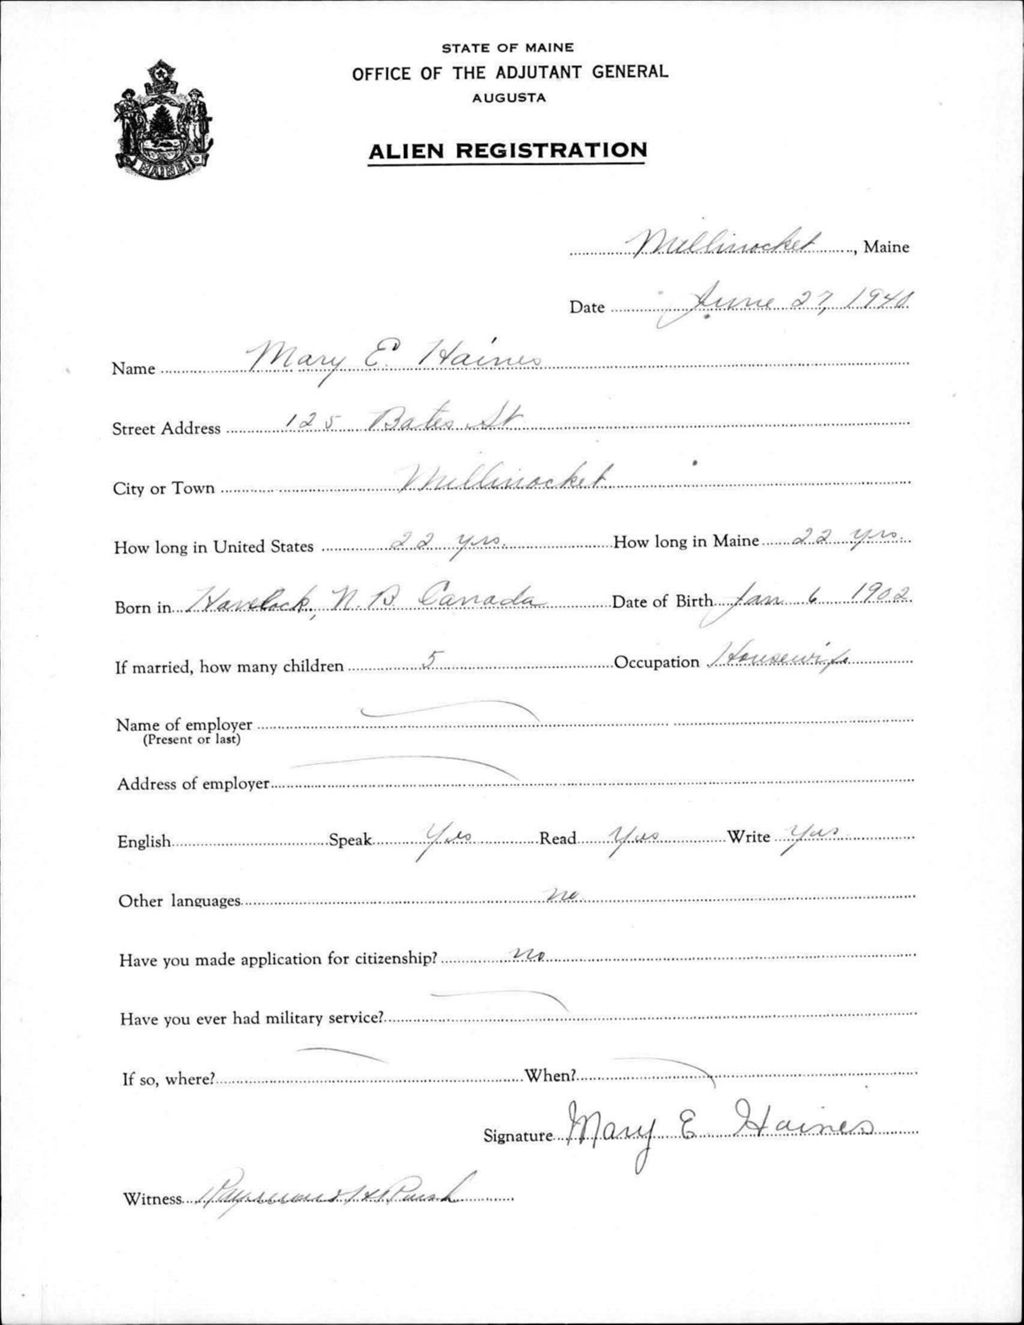 STATE OF MAINE
OFFICE OF THE ADJUTANT GENERAL
AUGUSTA
MAINE
ALIEN REGISTRATION
Millinocket, Maine
Date June 27, 1940
Name Mary E Haines
Street Address 125 Bates St
City or Town Millinocket
How long in United States 22 yrs. How long in Maine 22 yrs.
Born in Havelock, N. B. Canada Date of Birth Jan 6 1902
If married, how many children 5 Occupation Housewife
Name of employer
(Present or last)
Address of employer
English Speak Yes Read Yes Write Yes
Other languages no
Have you made application for citizenship? no
Have you ever had military service?
If so, where? When?
Signature Mary E Haines
Witness Raymond H